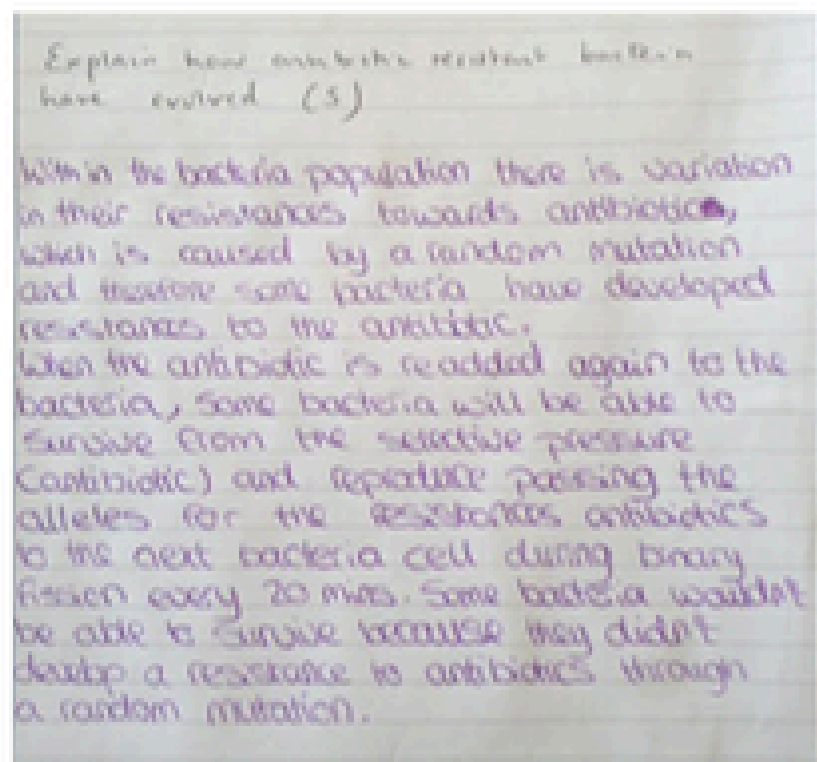 Explain how antibiotic resistant bacteria
have evolved (5)
Within the bacteria population there is variation
in their resistances towards antibiotics,
which is caused by a random mutation
and therefore some bacteria have developed
resistances to the antibiotic.
When the antibiotic is readded again to the
bacteria, some bacteria will be able to
survive from the selective pressure
(antibiotic) and reproduce passing the
alleles for the resistances antibiotics
to the next bacteria cell during binary
fission every 20 mins. Some bacteria wouldn't
be able to survive because they didn't
develop a resistance to antibiotics through
a random mutation.